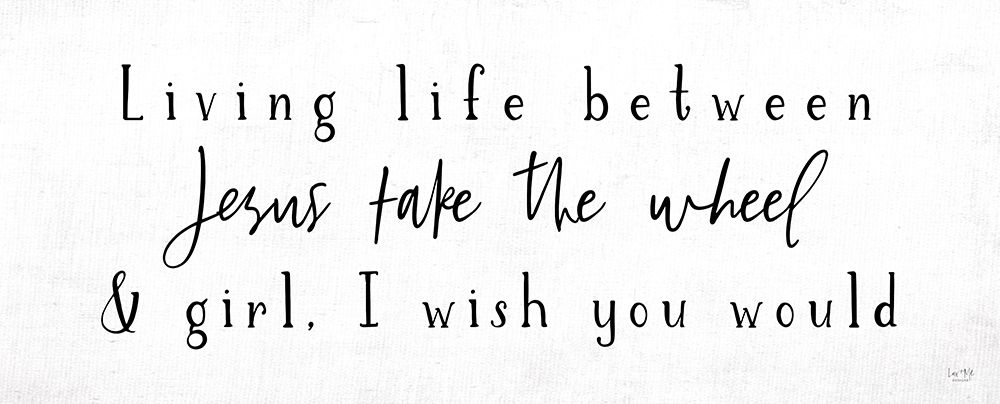 Living life between
Jesus take the wheel
& girl, I wish you would
Lux + Me
DESIGNS